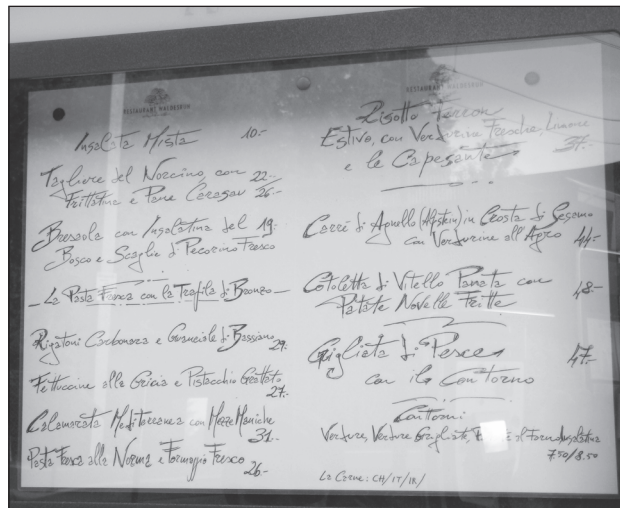 RESTAURANT WALDESRUH
Insalata Mista 10.-
Tagliere del Norcino, con 22.-
Frittatina e Pane Carasau 26.-
Bresaola con Insalatina del 19.-
Bosco e Scaglie di Pecorino Fresco
La Pasta Fresca con la Trafila di Bronzo
Rigatoni Carbonara e Guanciale di Bassiano 29.-
Fettuccine alla Gricia e Pistacchio Grattato
27.-
Calamarata Mediterranea con Mezze Maniche
31.-
Pasta Fresca alla Norma e Formaggio Fresco
26.-
RESTAURANT WALDESRUH
Risotto
Estivo, con Verdurina Fresche, Limone
e le Capesante 37.-
Carré di Agnello (Alpstein) in Crosta di Sesamo
con Verdurine all'Agro 44.-
Cotoletta di Vitello Panata con
Patate Novelle Fritte 48.-
Grigliata di Pesce
con il Contorno 47.-
Contorni
Verdure, Verdure Grigliate, al Forno, Insalatina
7.50/8.50
La Carne: CH/IT/IR/